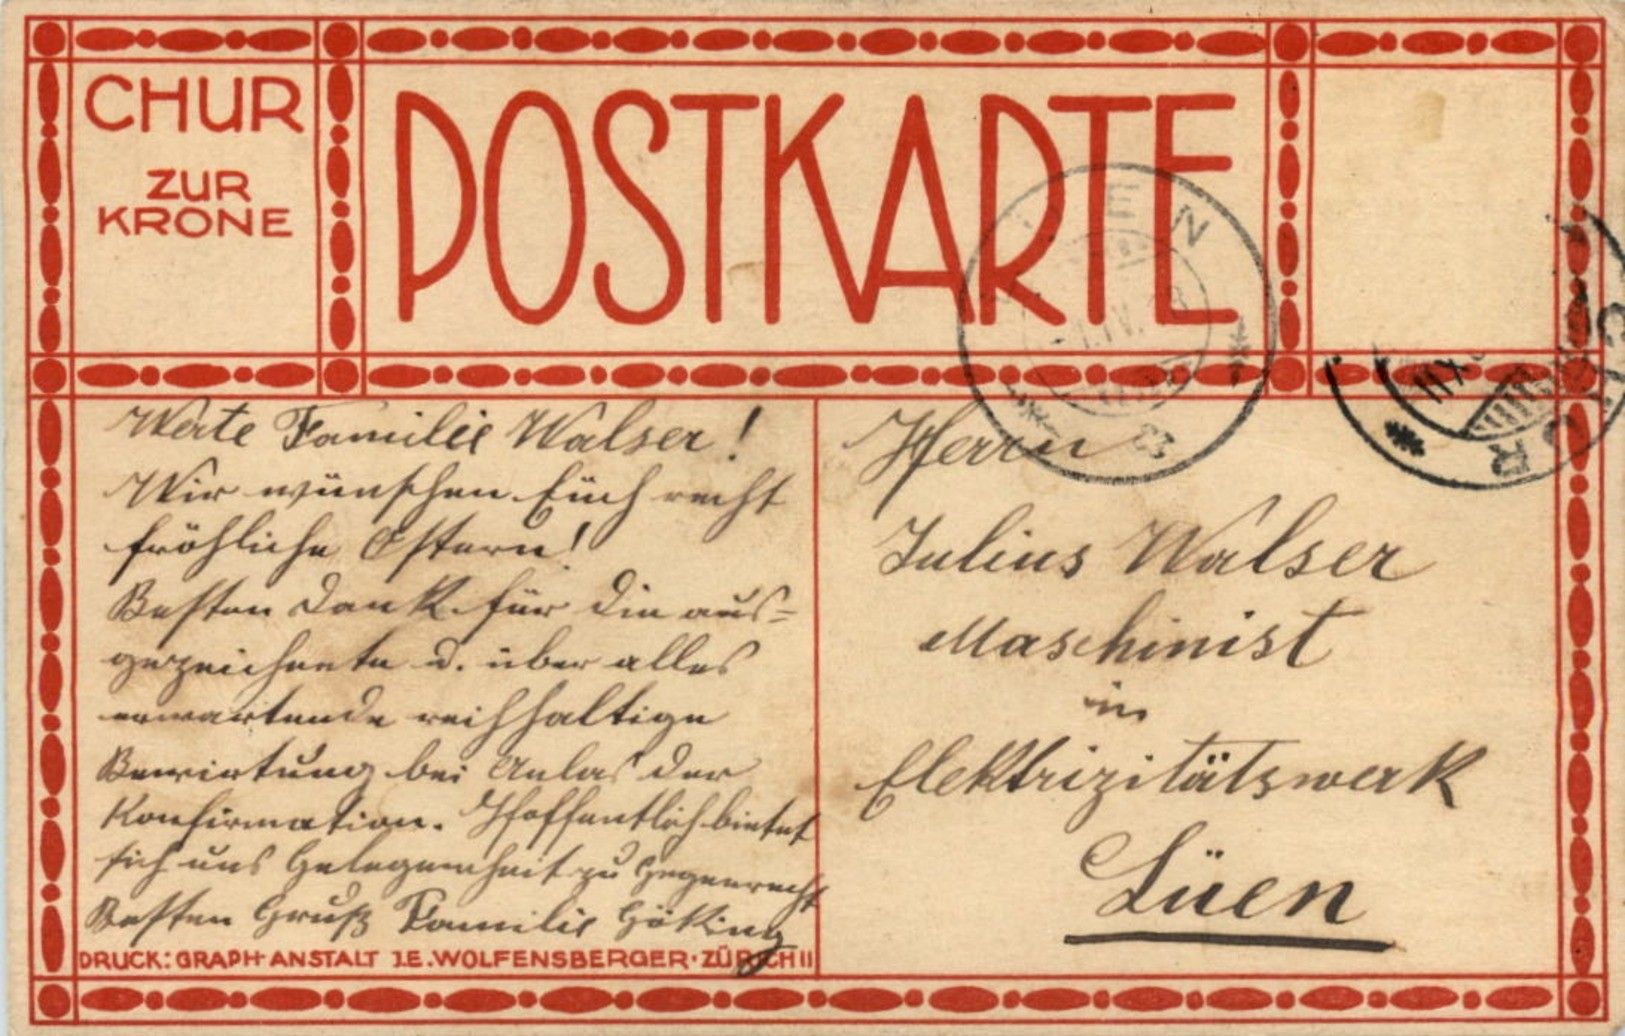 CHUR
ZUR
KRONE
POSTKARTE
Werte Familie Walser!
Wir wünschen Euch recht
fröhliche Ostern!
Besten Dank für die aus-
gezeichnete u. über alles
erwartende reichhaltige
Bewirtung bei Anlas der
Konfirmation. Hoffentlich bietet
sich uns Gelegenheit zu Gegenrecht
Besten Gruß Familie
DRUCK: GRAPH·ANSTALT J.E. WOLFENSBERGER·ZÜRICH II
Herrn
Julius Walser
Maschinist
in
Elektrizitätswerk
Lüen